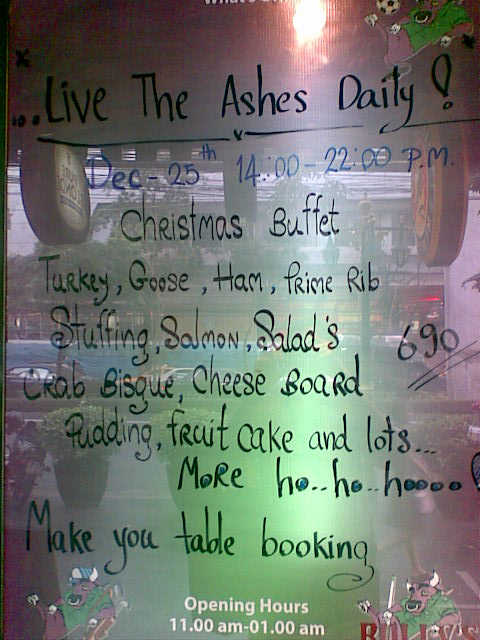 ...Live The Ashes Daily !
Dec - 25th 14:00 - 22:00 P.M.
Christmas Buffet
Turkey, Goose, Ham, Prime Rib
Stuffing, Salmon, Salad's 690
Crab Bisque, Cheese Board
Pudding, fruit cake and lots...
More ho..ho..hoooo!
Make you table booking
Opening Hours
11.00 am-01.00 am